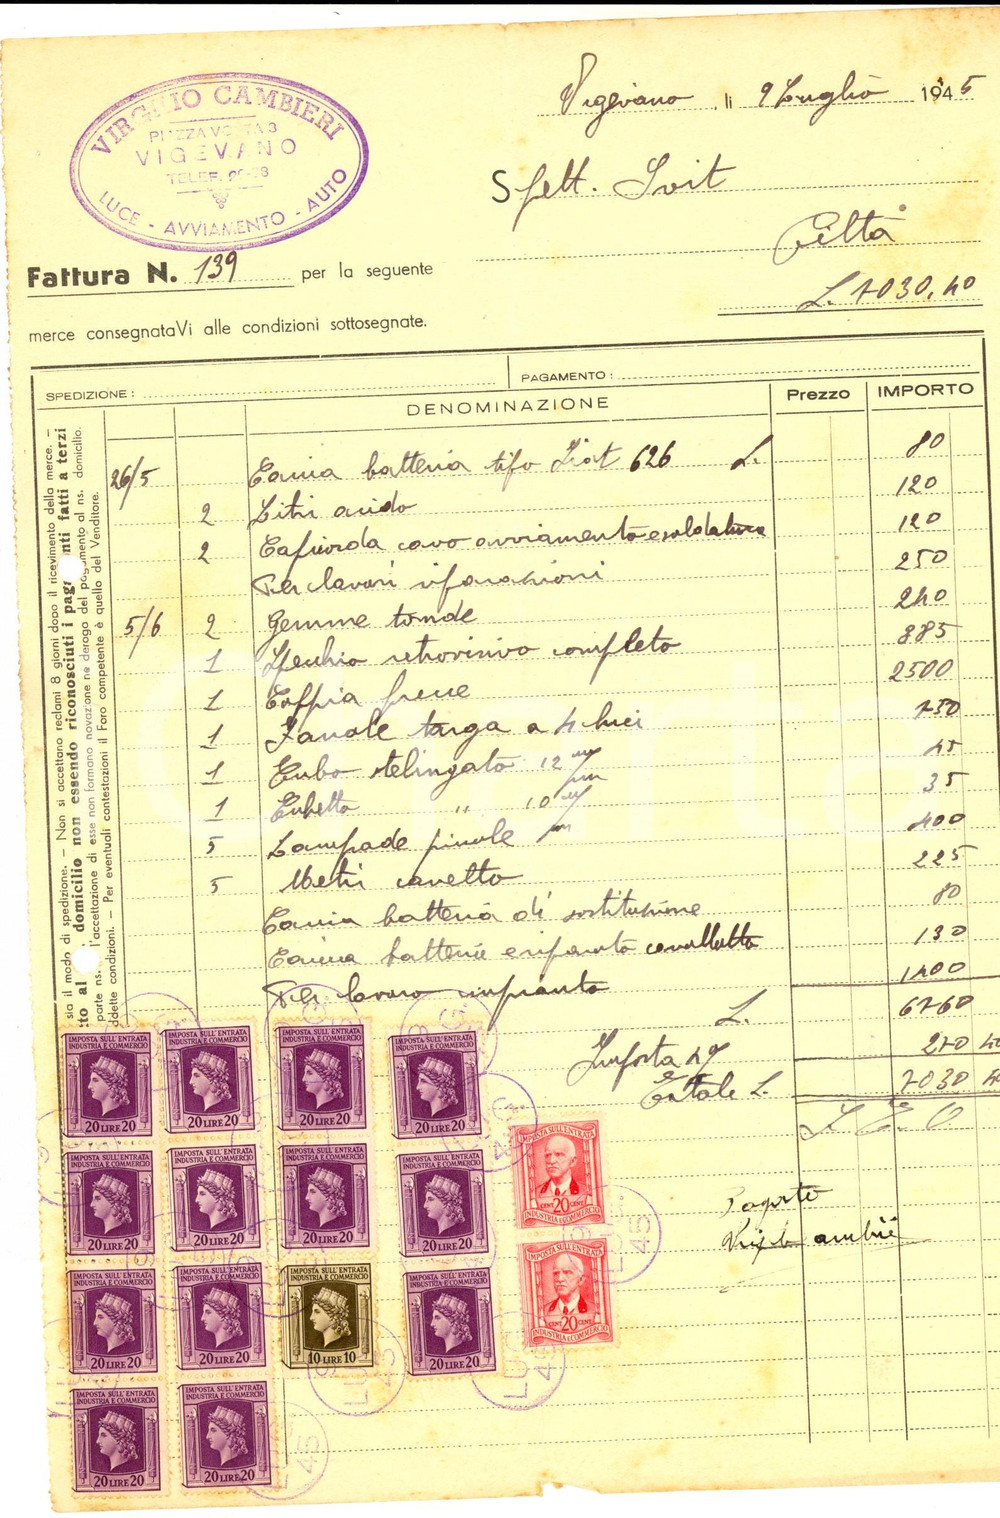 VIRGILIO CAMBIERI
PIAZZA VOLTA 3
VIGEVANO
TELEF.
LUCE - AVVIAMENTO - AUTO
Vigevano, li 9 Luglio 1945
Spett.
Città
Fattura N. 139 per la seguente
L. 7030,40
merce consegnataVi alle condizioni sottosegnate.
SPEDIZIONE: PAGAMENTO:
DENOMINAZIONE Prezzo IMPORTO
26/5 Carica batteria tipo Fiat 626 L. 80
2 Litri acido 120
2 Capicorda cavo avviamento e saldatura 120
Per lavori riparazioni 250
5/6 2 Gemme tonde 240
1 Specchio retrovisivo completo 885
1 Coppia frecce 2500
1 Fanale targa a 4 luci 250
1 Tubo sterlingato 12 m/m 45
1 Tubetto " 10 m/m 35
5 Lampade piccole 400
5 Metri cavetto 225
Carica batteria di sostituzione 80
Carica batteria e riparato cavallotto 130
Per lavoro impianto 1400
L. 6760
Imposta 4% 270 40
Totale L. 7030 40
S. E. O.
Pagato
sia il modo di spedizione. – Non si accettano reclami 8 giorni dopo il ricevimento della merce. –
domicilio non essendo riconosciuti i pagamenti fatti a terzi
parte ns. l'accettazione di esse non formano novazione ne deroga del pagamento al ns. domicilio.
ddette condizioni. – Per eventuali contestazioni il Foro competente è quello del Venditore.
IMPOSTA SULL'ENTRATA
INDUSTRIA E COMMERCIO
20 LIRE 20
IMPOSTA SULL'ENTRATA
INDUSTRIA E COMMERCIO
20 LIRE 20
IMPOSTA SULL'ENTRATA
INDUSTRIA E COMMERCIO
20 LIRE 20
IMPOSTA SULL'ENTRATA
INDUSTRIA E COMMERCIO
20 LIRE 20
IMPOSTA SULL'ENTRATA
INDUSTRIA E COMMERCIO
20 LIRE 20
IMPOSTA SULL'ENTRATA
INDUSTRIA E COMMERCIO
20 LIRE 20
IMPOSTA SULL'ENTRATA
INDUSTRIA E COMMERCIO
20 LIRE 20
IMPOSTA SULL'ENTRATA
INDUSTRIA E COMMERCIO
20 LIRE 20
IMPOSTA SULL'ENTRATA
INDUSTRIA E COMMERCIO
20 LIRE 20
IMPOSTA SULL'ENTRATA
INDUSTRIA E COMMERCIO
20 LIRE 20
IMPOSTA SULL'ENTRATA
INDUSTRIA E COMMERCIO
10 LIRE 10
IMPOSTA SULL'ENTRATA
INDUSTRIA E COMMERCIO
20 LIRE 20
IMPOSTA SULL'ENTRATA
INDUSTRIA E COMMERCIO
20 LIRE 20
IMPOSTA SULL'ENTRATA
INDUSTRIA E COMMERCIO
20 LIRE 20
IMPOSTA SULL'ENTRATA
CENT. 20 CENT.
INDUSTRIA E COMMERCIO
IMPOSTA SULL'ENTRATA
CENT. 20 CENT.
INDUSTRIA E COMMERCIO